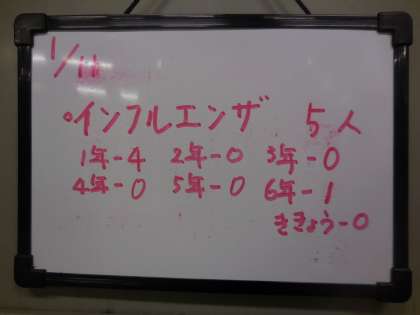 1/11
・インフルエンザ 5人
1年-4 2年-0 3年-0
4年-0 5年-0 6年-1
ききょう-0